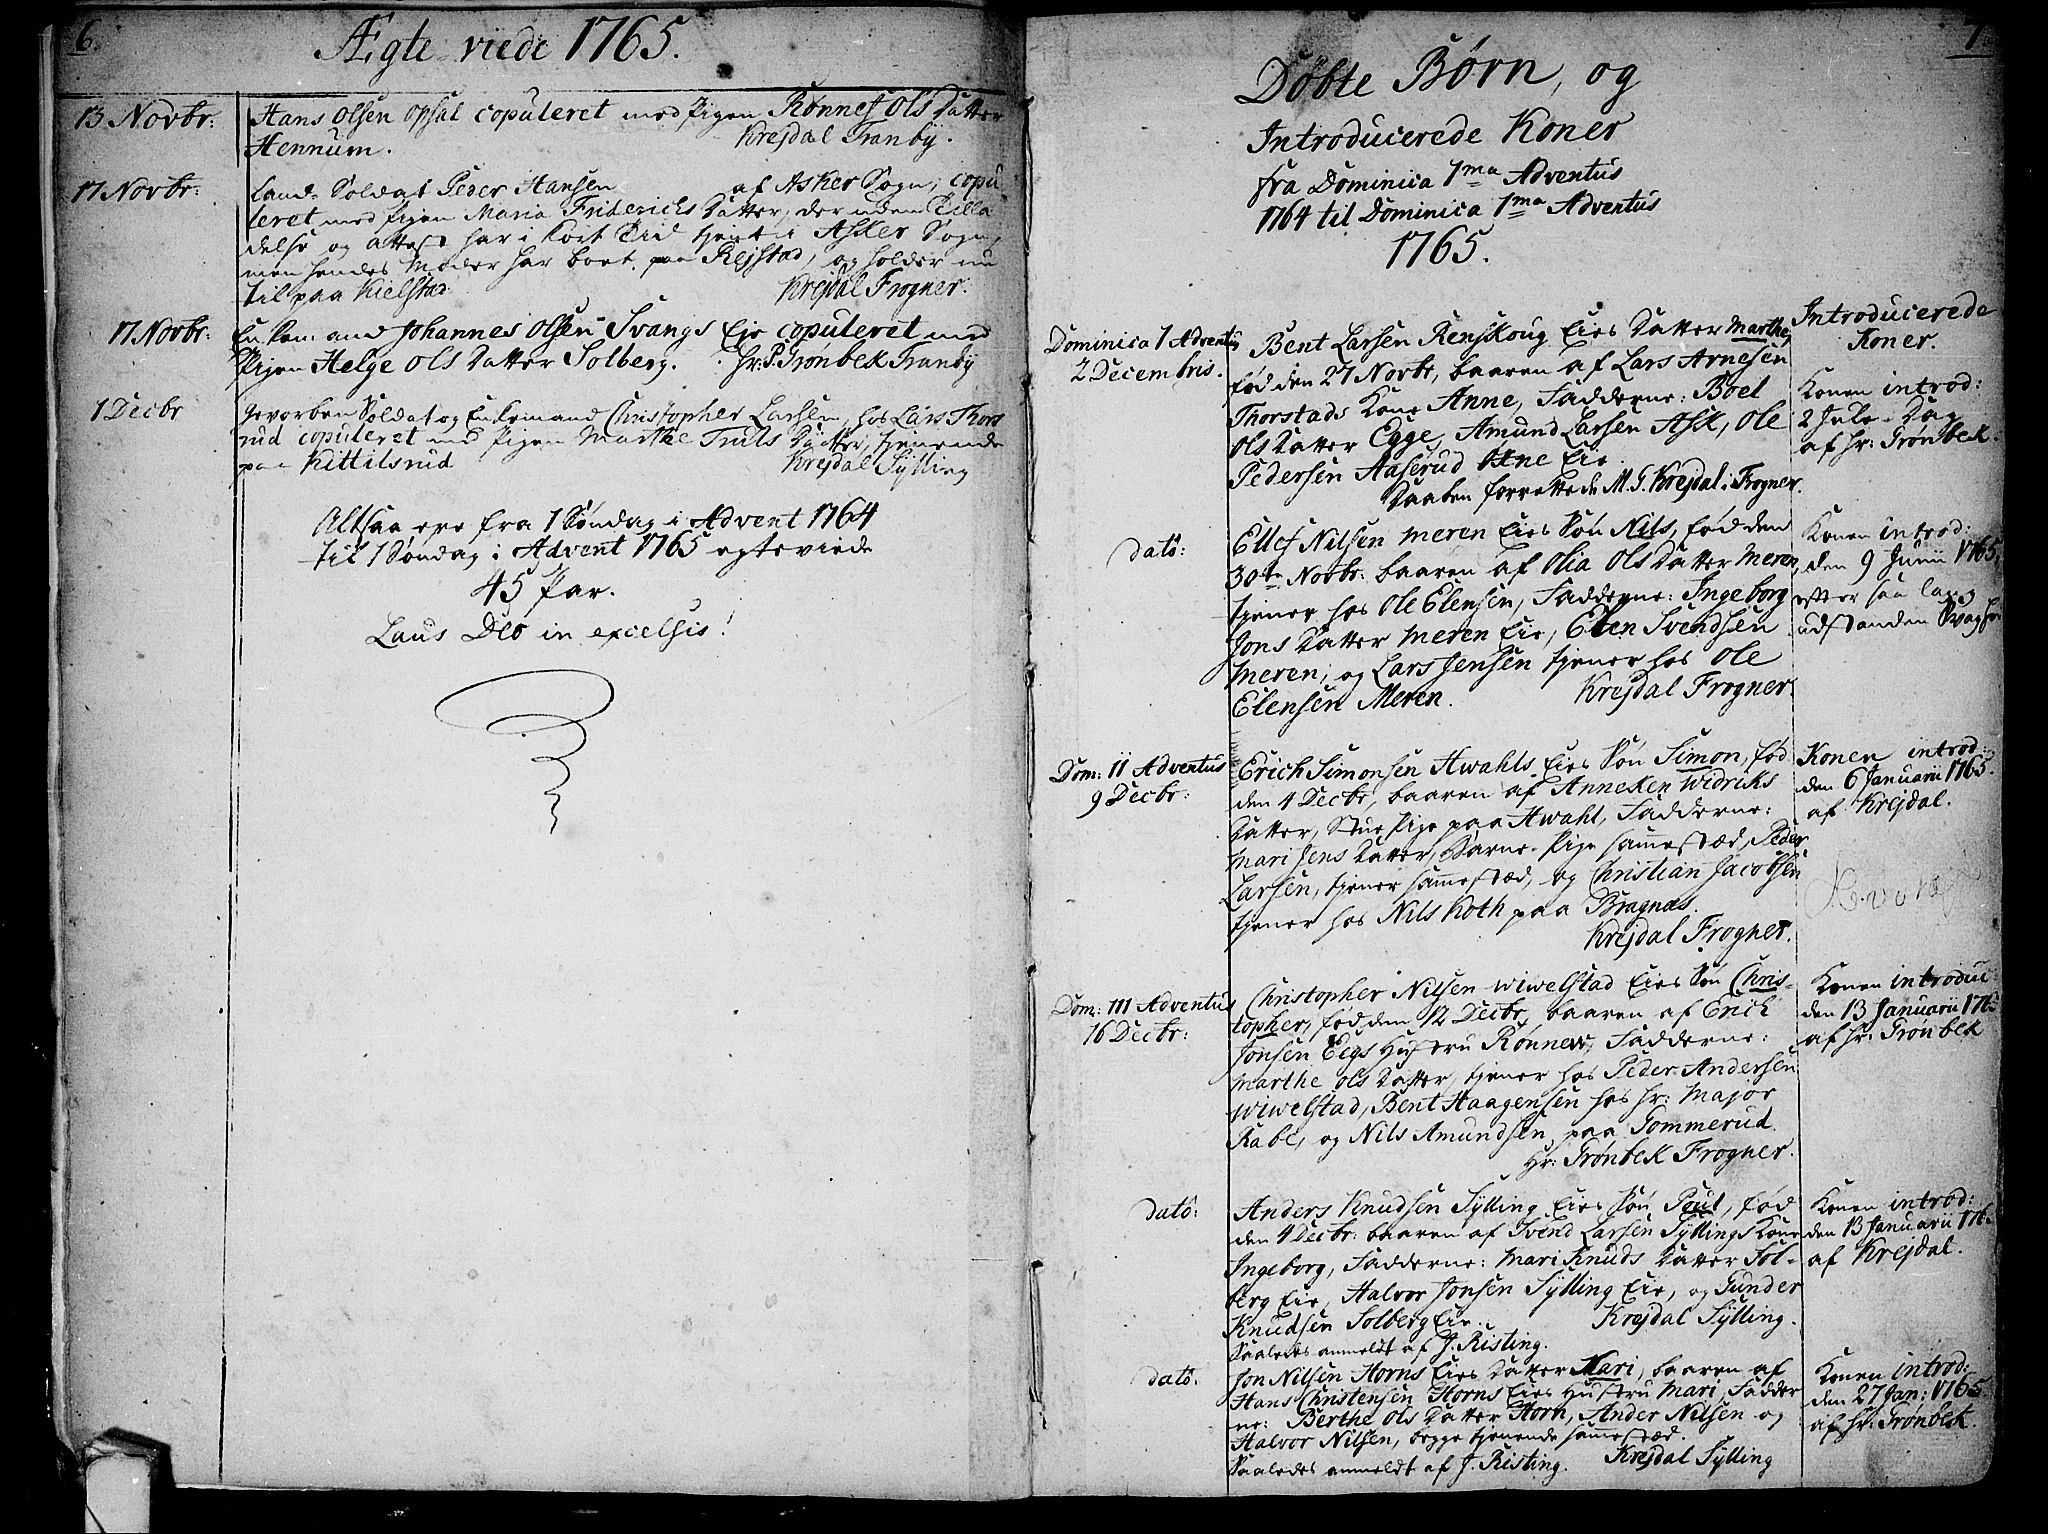 6.
Ægte viede 1765.
13 Novbr:
Hans Olsen Opsal copuleret med Pigen Rønnef Ols Datter
Hennum. Krejdal Tranby.
17 Novbr:
Land-Soldat Peder Hansen af Asker Sogn, copu-
leret med Pigen Maria Friderichs Datter, der uden Tilla
delse og attest har i kort Tiid tjent i Asker Sogn,
men hendes Moder har boet paa Rejstad, og holder nu
til paa Kielstad. Krejdal Frogner.
17 Novbr:
Enkemand Johannes Olsen Svangs Eje copuleret med
Pigen Helge Ols Datter Solberg. Hr: P. Grønbek Tranby
1 Decbr
Gevorben Soldat og Enkemand Christopher Larsen, hos Lars Thors
rud copuleret med Pigen Marthe Truls Datter, tjenende
paa Kittilsrud Krejdal Sylling
Altsaa ere fra 1 Søndag i Advent 1764
til 1 Søndag i Advent 1765 egteviede
45 Par.
Laus Deo in excelsis!
7.
Døbte Børn, og
Introducerede Koner
fra Dominica 1ma Adventus
1764 til Dominica 1ma Adventus
1765.
Introducerede
Koner.
Dominica 1 Adventus
2 Decembris.
Bent Larsen Renskoug Eies Datter Marthe,
fød den 27 Novbr, baaren af Lars Arnesen
Thorstads Kone Anne, Fadderne: Boel
Ols Datter Egge, Amund Larsen Ask, Ole
Pedersen Aaserud Eie
Daaben forrettede M. G. Krejdal i Frogner.
Konen introd:
2 Jule-Dag
af Hr: Grønbek.
dato:
Ellef Nilsen Meren Eies Søn Nils, fød den
30te Novbr: baaren af Olia Ols Datter Meren,
tjener hos Ole Elensen, Fadderne: Ingeborg
Jons Datter Meren Eie, Elen Svendsen
Meren, og Lars Jensen tjener hos Ole
Elensen Meren. Krejdal Frogner.
Konen introd:
den 9 Junii 1765.
efter saa lang
udstanden Svaghe
Dom: II Adventus
9 Decbr:
Erich Simonsen Awahls Eies Søn Simon, fød
den 1 Decbr, baaren af Anneken Widriks
Datter, Stue Pige paa Awahl, Fadderne:
Mari Jens Datter, Barne-Pige sammestæd, Peder
Larsen, tjener sammestæd, og Christian Jacobsen
tjener hos Nils Koth paa Bragnæs.
Krejdal Frogner.
Konen introd:
den 6 Januarii 1765.
af Krejdal.
Dom: III Adventus
16 Decbr:
Christopher Nilsen Wiwelstad Eies Søn Chris-
topher, fød den 12 Decbr, baaren af Erich
Jonsen Eegs Hustru Rønnew, Fadderne:
Marthe Ols Datter, tjener hos Peder Andersen
Wiwelstad, Bent Haagensen hos Hr: Major
Rabe, og Nils Amundsen paa Gommerud.
Hr: Grønbek Frogner.
Konen introduc
den 13 Januarii 1765
af Hr: Grønbek
dato:
Anders Knudsen Sylling Eies Søn Poul, fød
den 4 Decbr: baaren af Svend Larsen Syllings Kone
Ingeborg, Fadderne: Mari Knuds Datter Sol-
berg Eie, Halvor Jonsen Sylling Eie, og Gunder
Knudsen Solberg Eie. Krejdal Sylling.
Saaledes anmeldt af J. Risting.
Konen introd:
den 13 Januarii 176
af Krejdal.
dato.
Jon Nilsen Horns Eies Datter Mari, baaren af
Hans Christensen Horns Eies Hustru Mari, Fadder
ne: Berthe Ols Datter Horn, Ander Nilsen og
Halvor Nilsen, begge tjenende sammestæd.
Saaledes anmeldt af J. Risting. Krejdal Sylling
Konen introd:
den 27 Jan: 1765
af Hr: Grønbek.